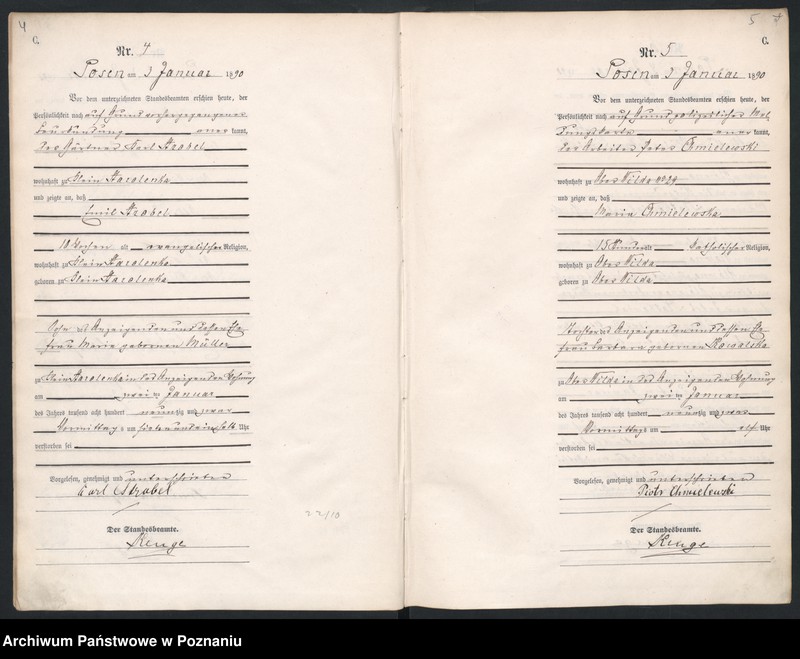 4
C.
Nr. 4
Posen am 3 Januar 1890
Vor dem unterzeichneten Standesbeamten erschien heute, der
Persönlichkeit nach auf Grund vorhergegangener
kannt,
der Gärtner Karl Strobel
wohnhaft zu Klein Starolenka
und zeigte an, daß
Emil Strobel
10 Wochen alt evangelischer Religion,
wohnhaft zu Klein Starolenka
geboren zu Klein Starolenka
Sohn des Anzeigenden und dessen Ehe
frau Maria geborenen Müller
zu Klein Starolenka in des Anzeigenden Wohnung
am zwei ten Januar
des Jahres tausend acht hundert neunzig und zwar
Vormittags um sieben und ein halb Uhr
verstorben sei
Vorgelesen, genehmigt und unterschrieben
Karl Strobel
Der Standesbeamte.
22/10
5
C.
Nr. 5
Posen am 3 Januar 1890
Vor dem unterzeichneten Standesbeamten erschien heute, der
Persönlichkeit nach auf Grund polizeilicher Mel
dungskarte aner kannt,
der Arbeiter Peter Chmielewski
wohnhaft zu Ober Wilda
und zeigte an, daß
Maria Chmielewska
15 Stunden alt katholischer Religion,
wohnhaft zu Ober Wilda
geboren zu Ober Wilda
Tochter des Anzeigenden und dessen Ehe
frau Barbara geborenen Kowalska
zu Ober Wilda in des Anzeigenden Wohnung
am zwei ten Januar
des Jahres tausend acht hundert neunzig und zwar
Vormittags um elf Uhr
verstorben sei
Vorgelesen, genehmigt und unterschrieben
Piotr Chmielewski
Der Standesbeamte.
Archiwum Państwowe w Poznaniu